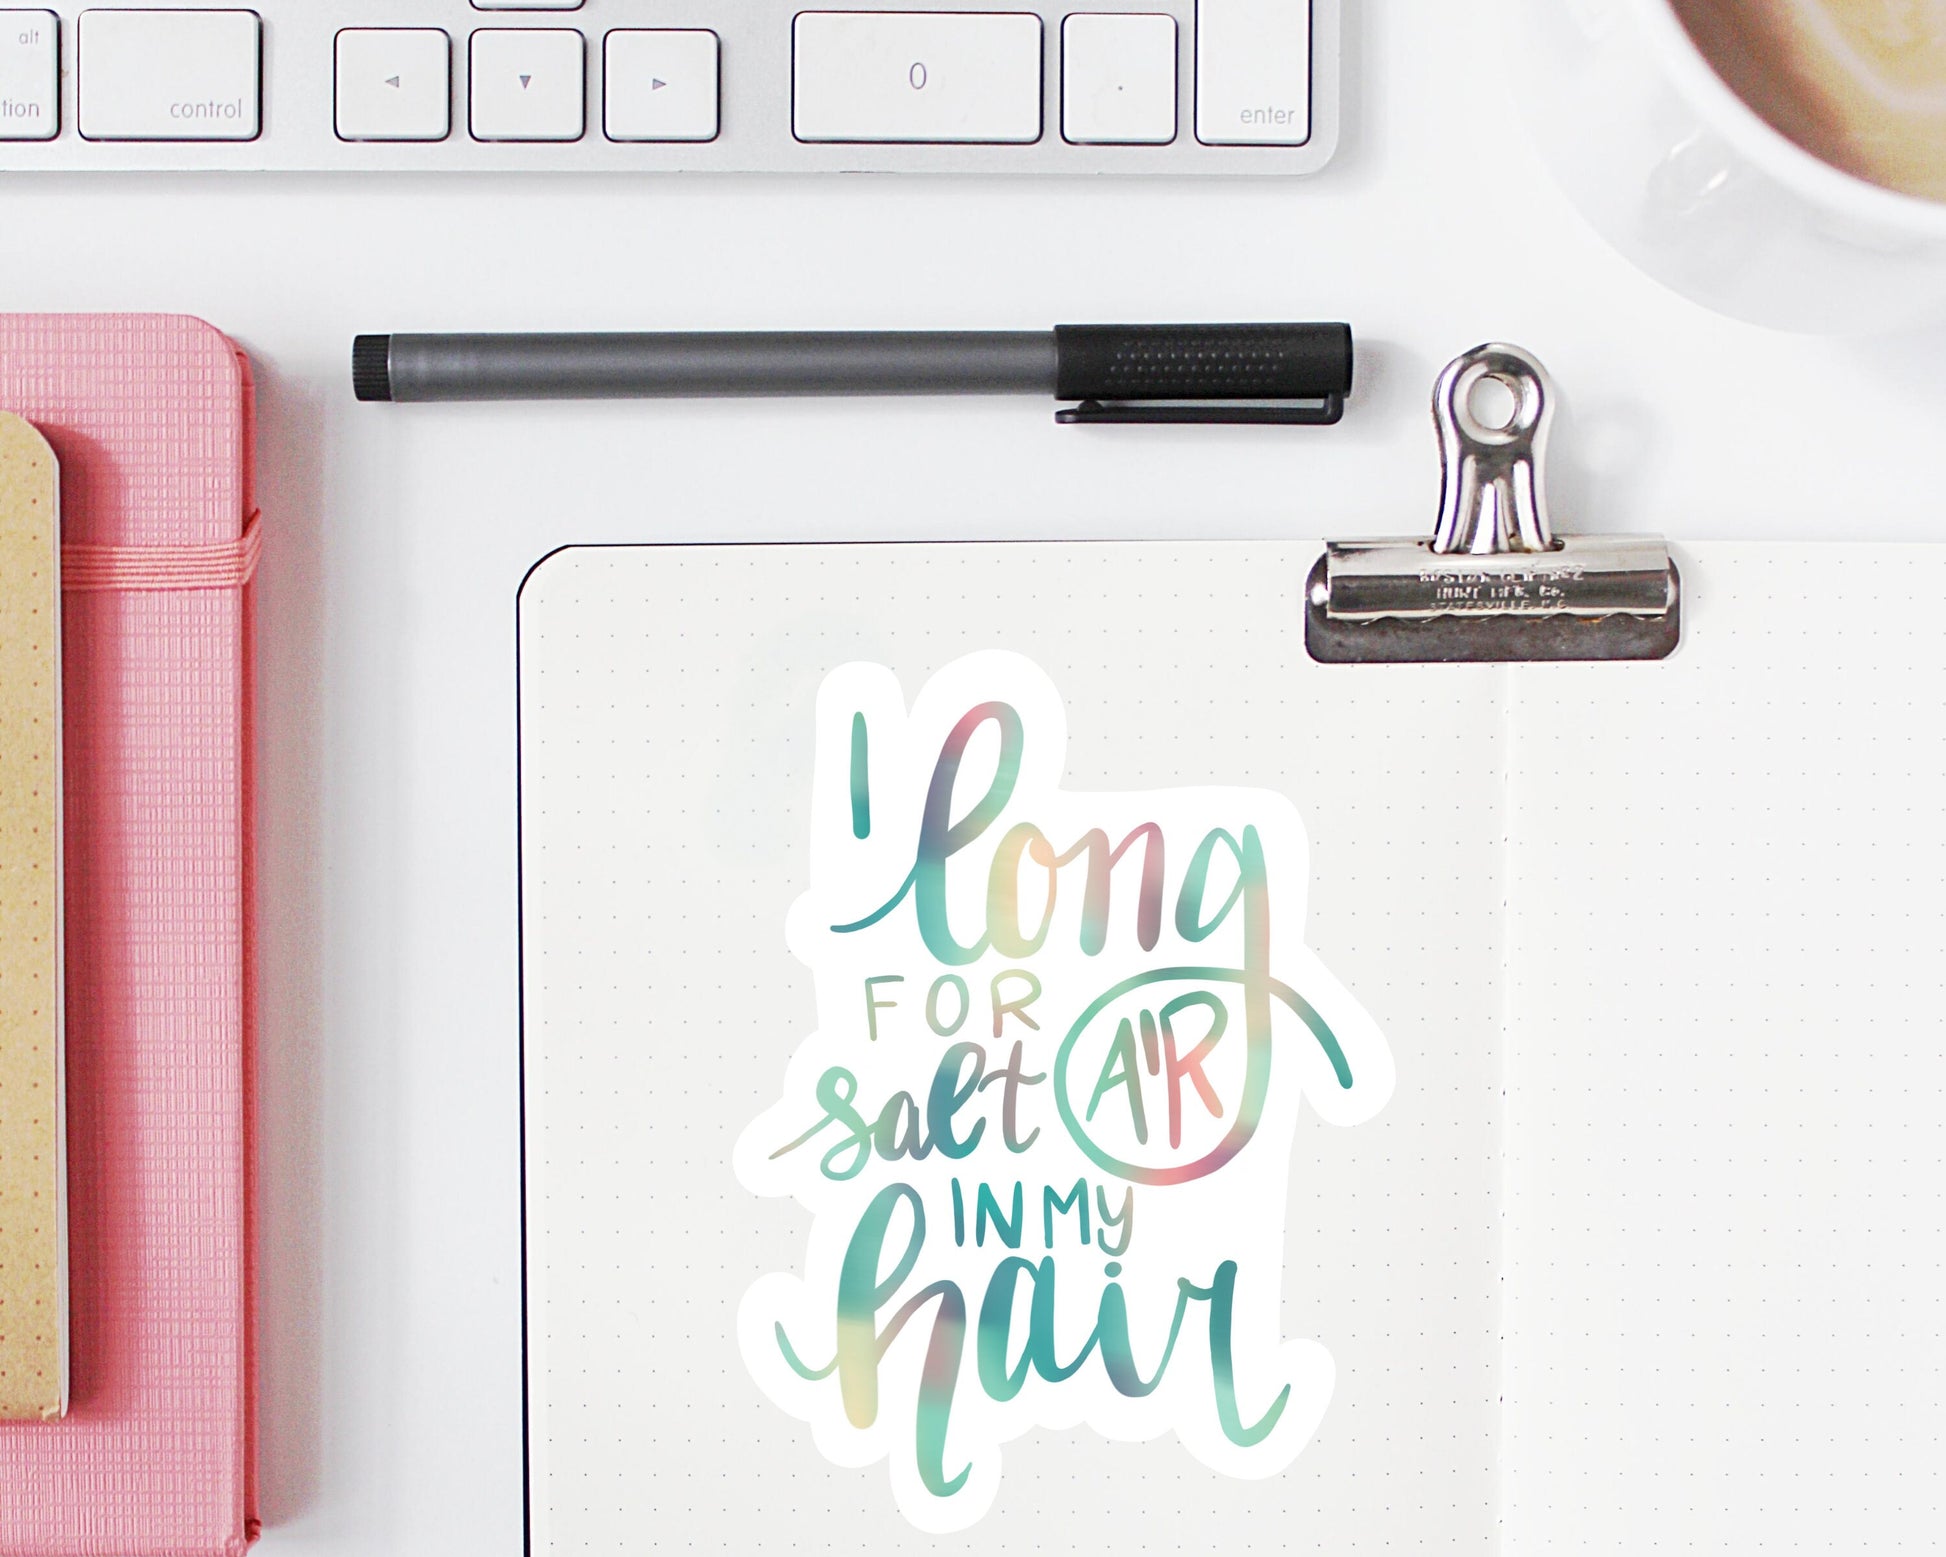 alt
tion
control
◄
▼
►
0
.
enter
HUNT MFG. CO.
STATESVILLE, N.C.
I long
FOR
salt AIR
IN MY
hair